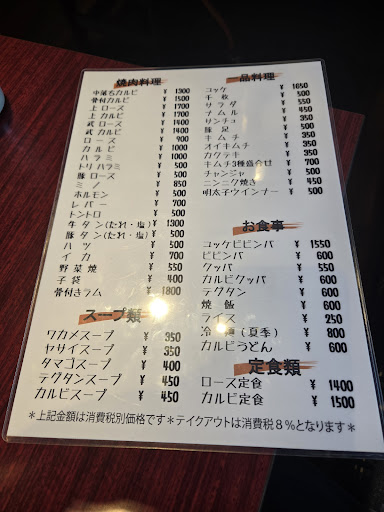 焼肉料理
中落ちカルビ ¥ 1300
骨付カルビ ¥ 1500
上 ロース ¥ 1700
上 カルビ ¥ 1700
武 ロース ¥ 1400
武 カルビ ¥ 1400
ロース ¥ 900
カルビ ¥ 1000
ハラミ ¥ 1000
トリハラミ ¥ 500
豚 ロース ¥ 500
ミノ ¥ 850
ホルモン ¥ 500
レバー ¥ 700
トントロ ¥ 500
牛 タン(たれ・塩) ¥ 1300
豚 タン(たれ・塩) ¥ 500
ハツ ¥ 500
イカ ¥ 700
野菜焼 ¥ 550
子袋 ¥ 400
骨付きラム ¥ 1800
スープ類
ワカメスープ ¥ 350
ヤサイスープ ¥ 350
タマゴスープ ¥ 400
テグタンスープ ¥ 450
カルビスープ ¥ 450
一品料理
ユッケ ¥ 1050
千枚 ¥ 500
サラダ ¥ 550
ナムル ¥ 450
サンチュ ¥ 350
豚足 ¥ 500
キムチ ¥ 350
オイキムチ ¥ 350
カクテキ ¥ 350
キムチ3種盛合せ ¥ 700
チャンジャ ¥ 500
ニンニク焼き ¥ 450
明太子ウインナー ¥ 500
お食事
ユッケビビンバ ¥ 1550
ビビンバ ¥ 600
クッパ ¥ 550
カルビクッパ ¥ 600
テグタン ¥ 600
焼飯 ¥ 600
ライス ¥ 250
冷麺(夏季) ¥ 800
カルビうどん ¥ 600
定食類
ロース定食 ¥ 1400
カルビ定食 ¥ 1500
*上記金額は消費税別価格です*テイクアウトは消費税8%となります*